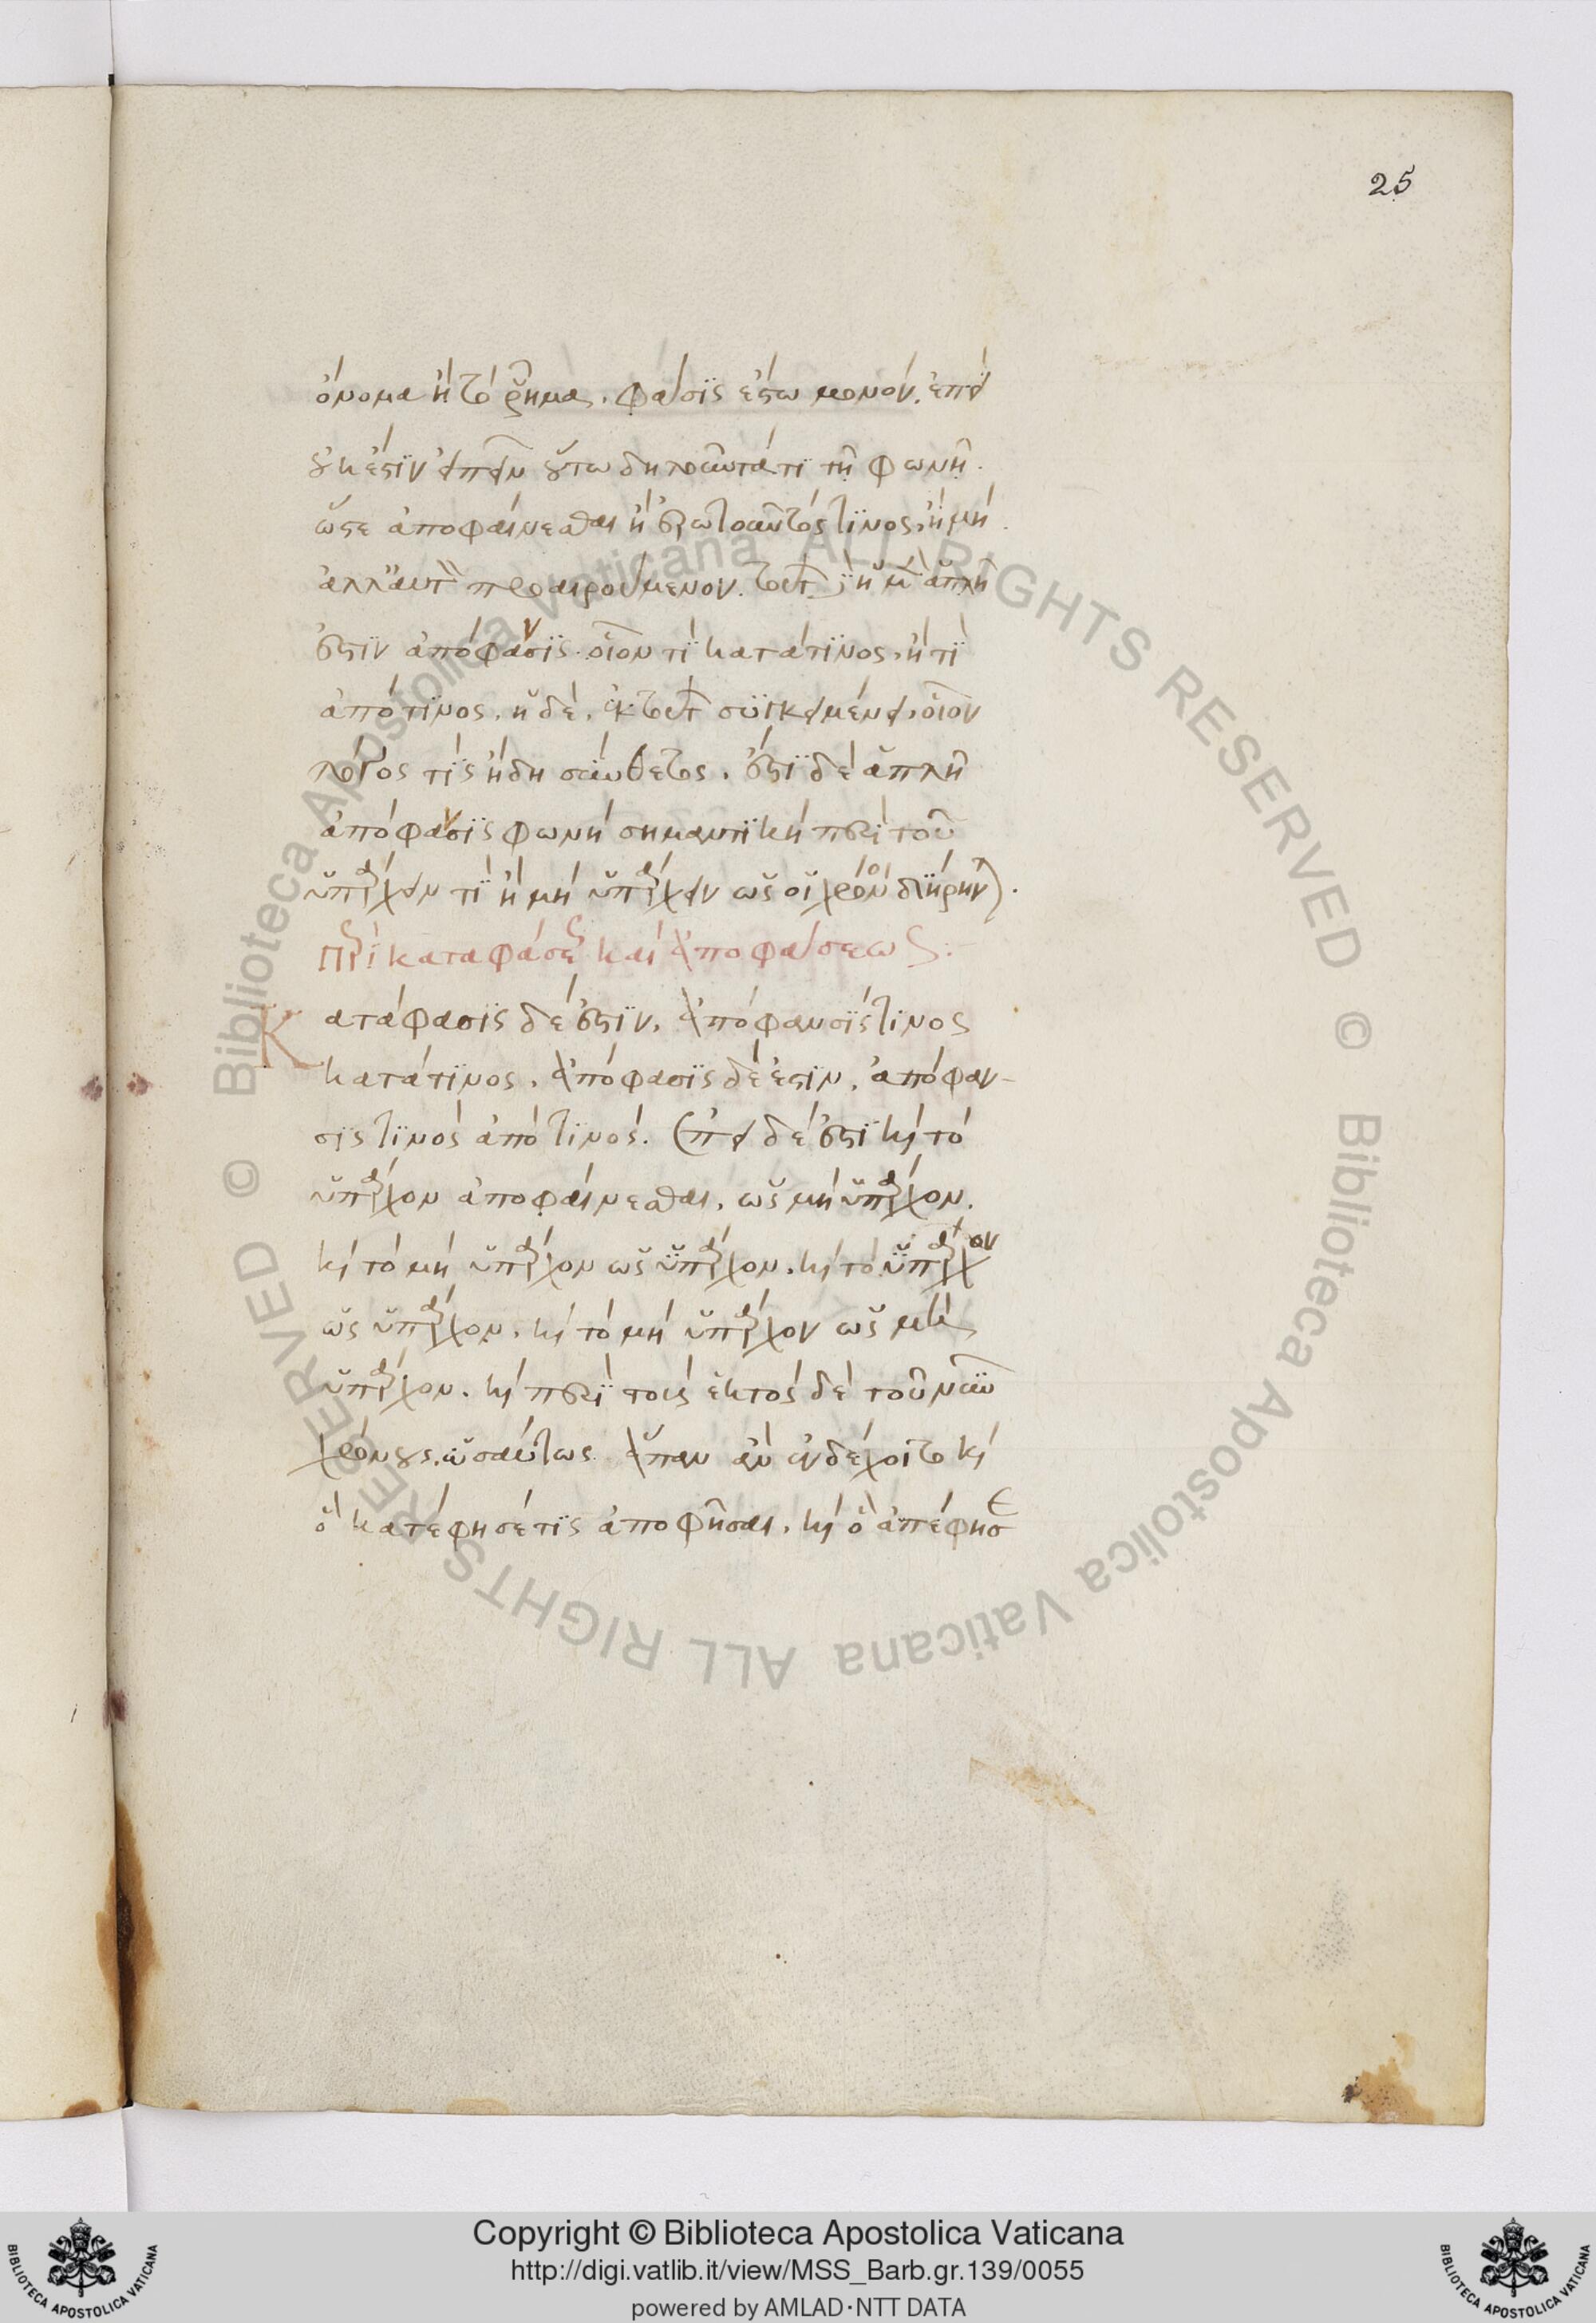 25
ὄνομα ἢ τὸ ῥῆμα. φάσις ἔστω μόνον. ἐπεὶ
οὐκ ἔστιν εἰπεῖν οὕτω δηλοῦντά τι τῇ φωνῇ.
ὥστε ἀποφαίνεσθαι ἢ ἐρωτῶντός τινος, ἢ μὴ
ἀλλ' αὐτὸν προαιρούμενον. τούτων ἡ μὲν ἁπλῆ
ἐστὶν ἀπόφανσις. οἷον τὶ κατὰ τινὸς, ἢ τὶ
ἀπὸ τινὸς. ἡ δὲ, ἐκ τούτων συγκειμένη, οἷον
λόγος τὶς ἤδη σύνθετος. ἐστὶ δὲ ἁπλῆ
ἀπόφανσις φωνὴ σημαντικὴ περὶ τοῦ
ὑπάρχειν τὶ ἢ μὴ ὑπάρχειν ὡς οἱ χρόνοι διῄρηνται.
Περὶ καταφάσεως καὶ ἀποφάσεως:
Κατάφασις δέ ἐστιν, ἀπόφανσίς τινος
κατὰ τινὸς. ἀπόφασις δέ ἐστιν, ἀπόφαν-
σις τινὸς ἀπὸ τινὸς. ἐπεὶ δέ ἐστι καὶ τὸ
ὑπάρχον ἀποφαίνεσθαι, ὡς μὴ ὑπάρχον.
καὶ τὸ μὴ ὑπάρχον ὡς ὑπάρχον. καὶ τὸ ὑπάρχον
ὡς ὑπάρχον. καὶ τὸ μὴ ὑπάρχον ὡς μὴ
ὑπάρχον. καὶ περὶ τοὺς ἐκτὸς δὲ τοῦ νῦν
χρόνους. ὡσαύτως ἅπαν ἂν ἐνδέχοιτο καὶ
ὃ κατέφησέ τις ἀποφῆσαι. καὶ ὃ ἀπέφησε
Copyright © Biblioteca Apostolica Vaticana
http://digi.vatlib.it/view/MSS_Barb.gr.139/0055
powered by AMLAD·NTT DATA
BIBLIOTECA APOSTOLICA VATICANA
BIBLIOTECA APOSTOLICA VATICANA
© Biblioteca Apostolica Vaticana ALL RIGHTS RESERVED
© Biblioteca Apostolica Vaticana ALL RIGHTS RESERVED